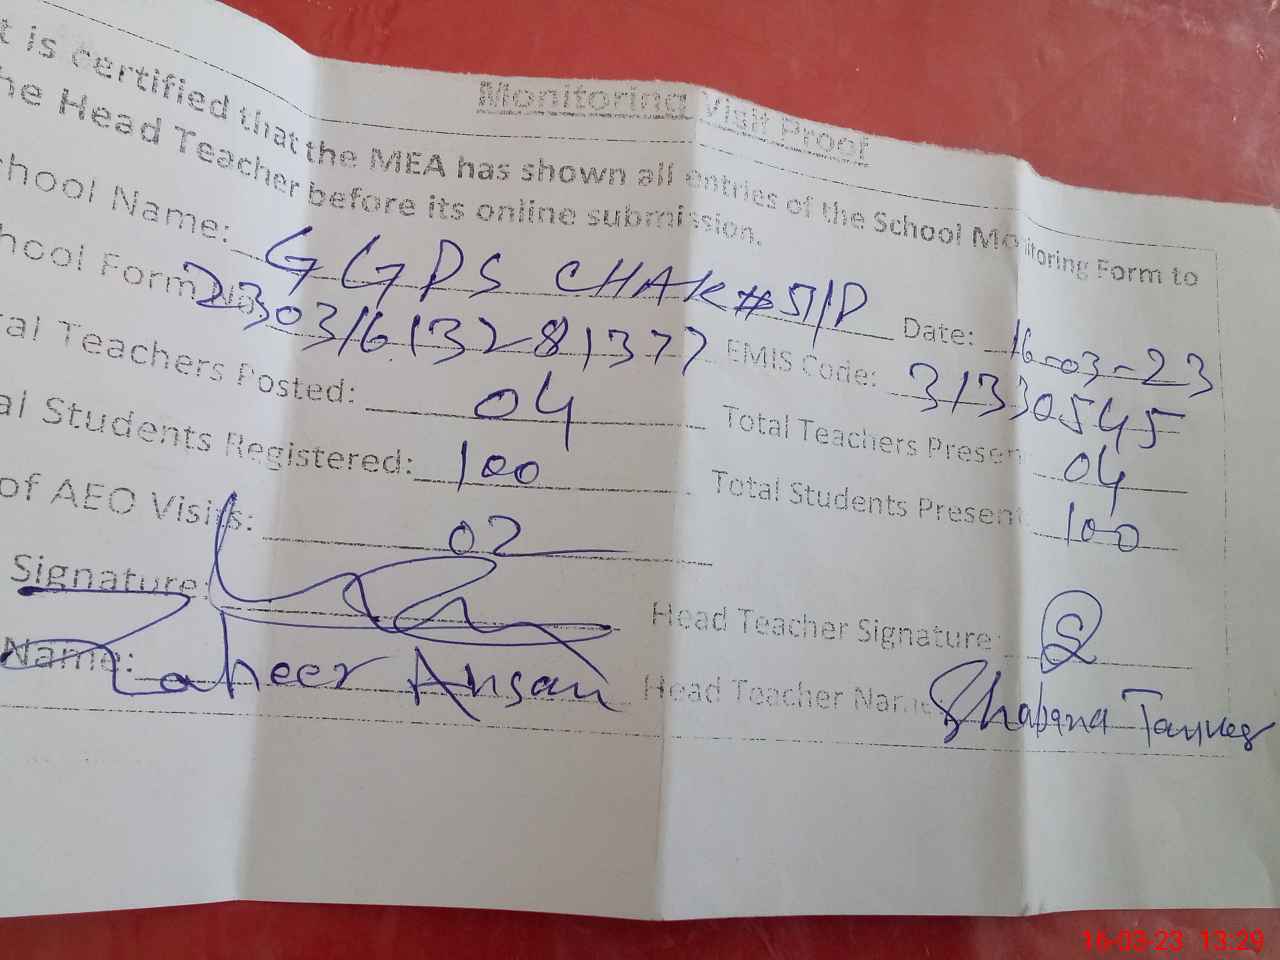 Monitoring Visit Proof
t is certified that the MEA has shown all entries of the School Monitoring Form to
he Head Teacher before its online submission.
chool Name: GGPS CHAK #51/P Date: 16-03-23
chool Form No 23031613281377 EMIS Code: 31330545
tal Teachers Posted: 04 Total Teachers Presen 04
al Students Registered: 100 Total Students Present 100
of AEO Visits: 02
Signature: Head Teacher Signature:
Name: Zaheer Ansari Head Teacher Name Shabana
16-03-23 13:29